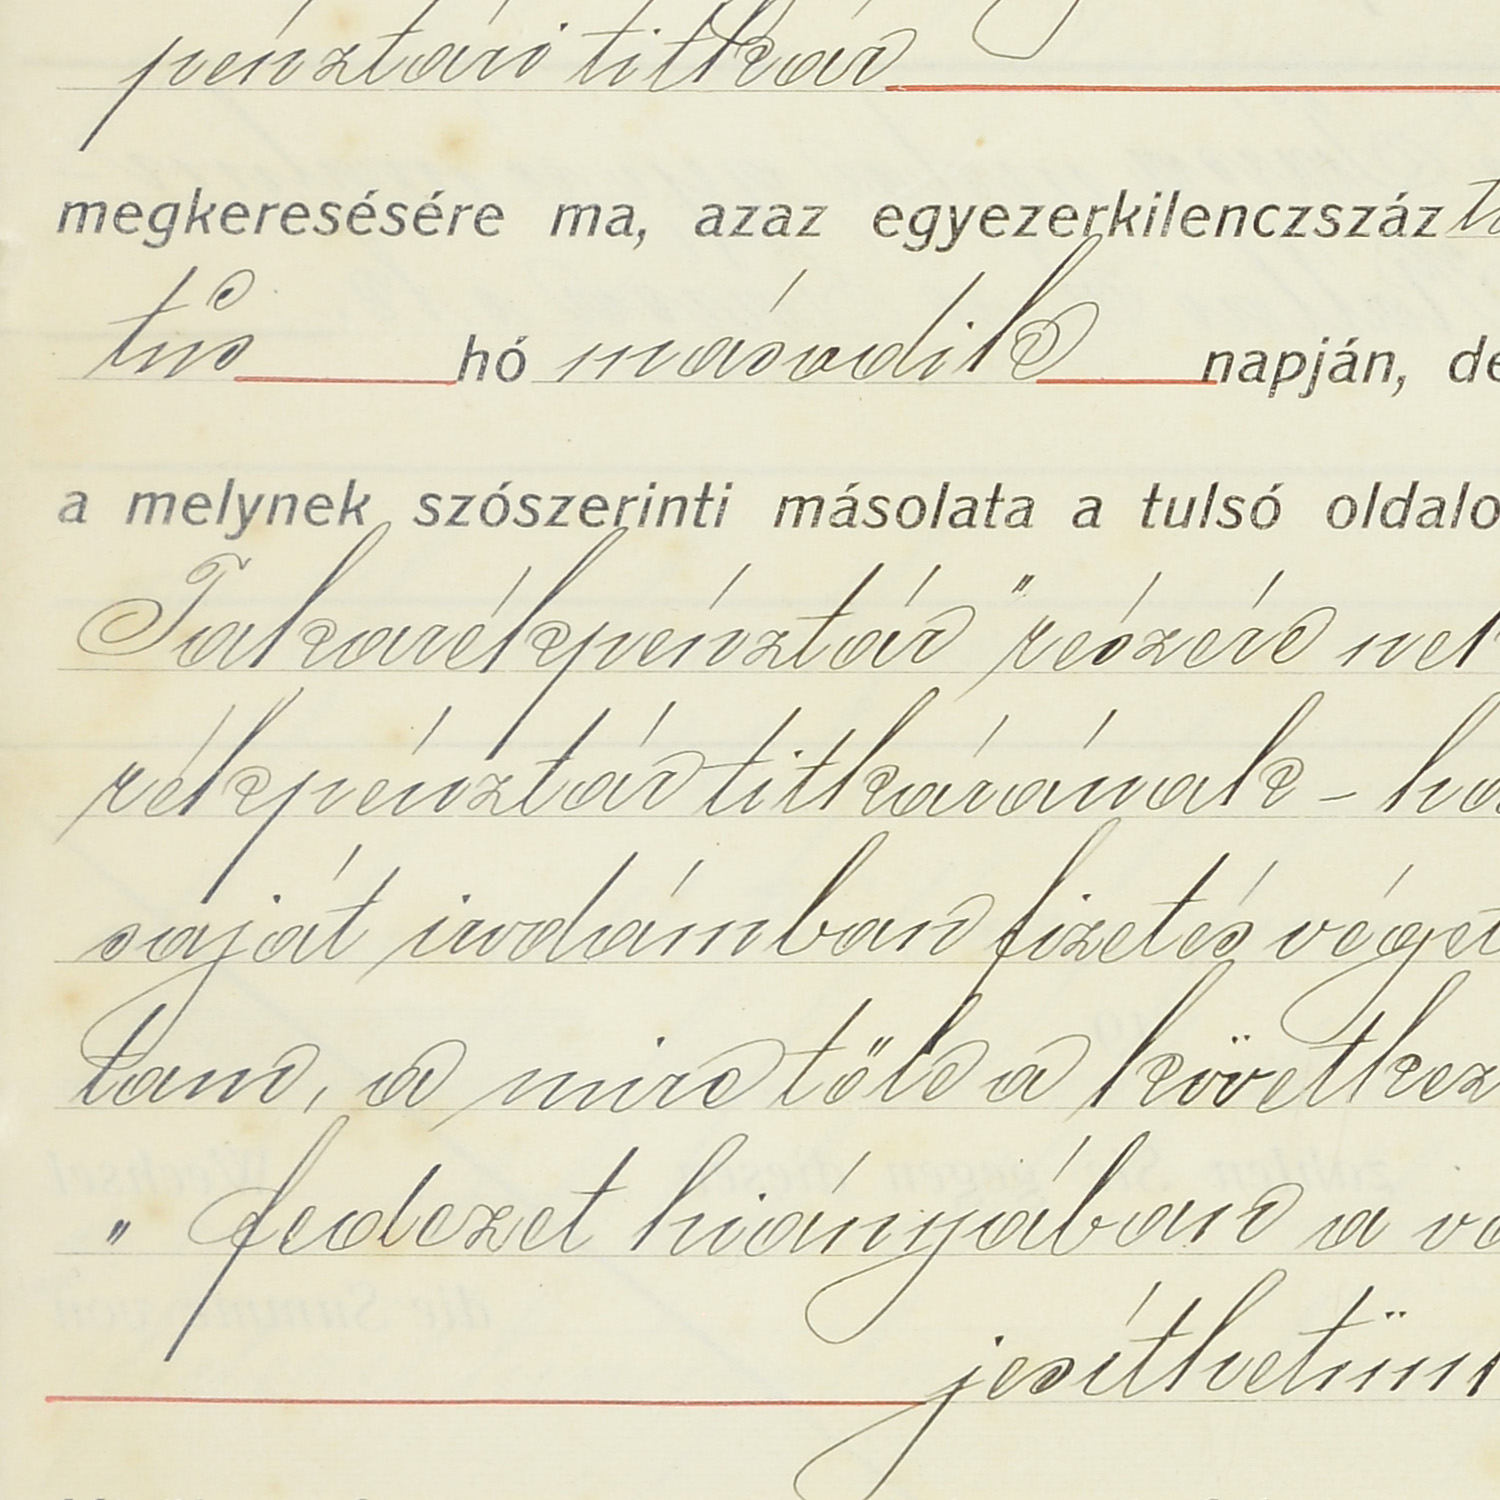 pénztári titkár
megkeresésére ma, azaz egyezerkilenczszáz
tus hó második napján, de
a melynek szószerinti másolata a tulsó oldalo
Takarékpénztár" részére nek
rékpénztár titkárának - ha
saját irodámban fizetés véget
tam, a mire tőle a következ
" fedezet hiányában a vá
jesíthetünk